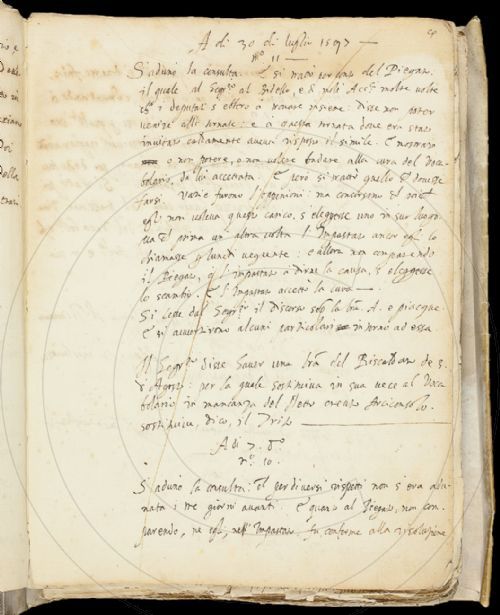 A di 30 di luglio 1597
nº 11
S'adunò la consulta. E si trattò sor cura del Piegato.
il quale al segr.º al Bidello, e à molti Acc.ci molte volte
i deputati s'estero à trovare insieme: Disse non poter
venire alle tornate: e à questa tornata dove era stato
invitato caldamente aveva risposto il simile. E mostrato
o non potere, o non volere attendere alla cura del Voca
bolario, da lui accettata. E però si trattò quello che dovesse
farsi. Varie furono l'oppenioni: ma concorsono che
egli non voleva questo carico, s'eleggesse uno in suo luogo
ma che prima un altra volta l'Impastato ancor egli lo
chiamasse p lunedì vegnente: e allora non comparendo
il Piegato, e l'Impastato à dirne la causa, s'eleggesse
lo scambio. E l'Impastato accettò la cura
Si lesse dal Segr.º il discorso sob la lra. A. e piacque.
E si avvertirono alcuni particolari intorno ad essa.
Il Segr.º disse haver una lra del Riscaldato de 5.
d'Agosto: per la quale sostituiva in sua vece al Voca
bolario in mancanza del
sostituiva, dico, il Trito
A di 7. d.º
nº. 10.
S'adunò la consulta: che per diversi rispetti non s'era adu
nata i tre giorni avanti: E quanto al Piegato, non com
parendo, ne egli, ne l'Impastato fu conforme alla risoluzione